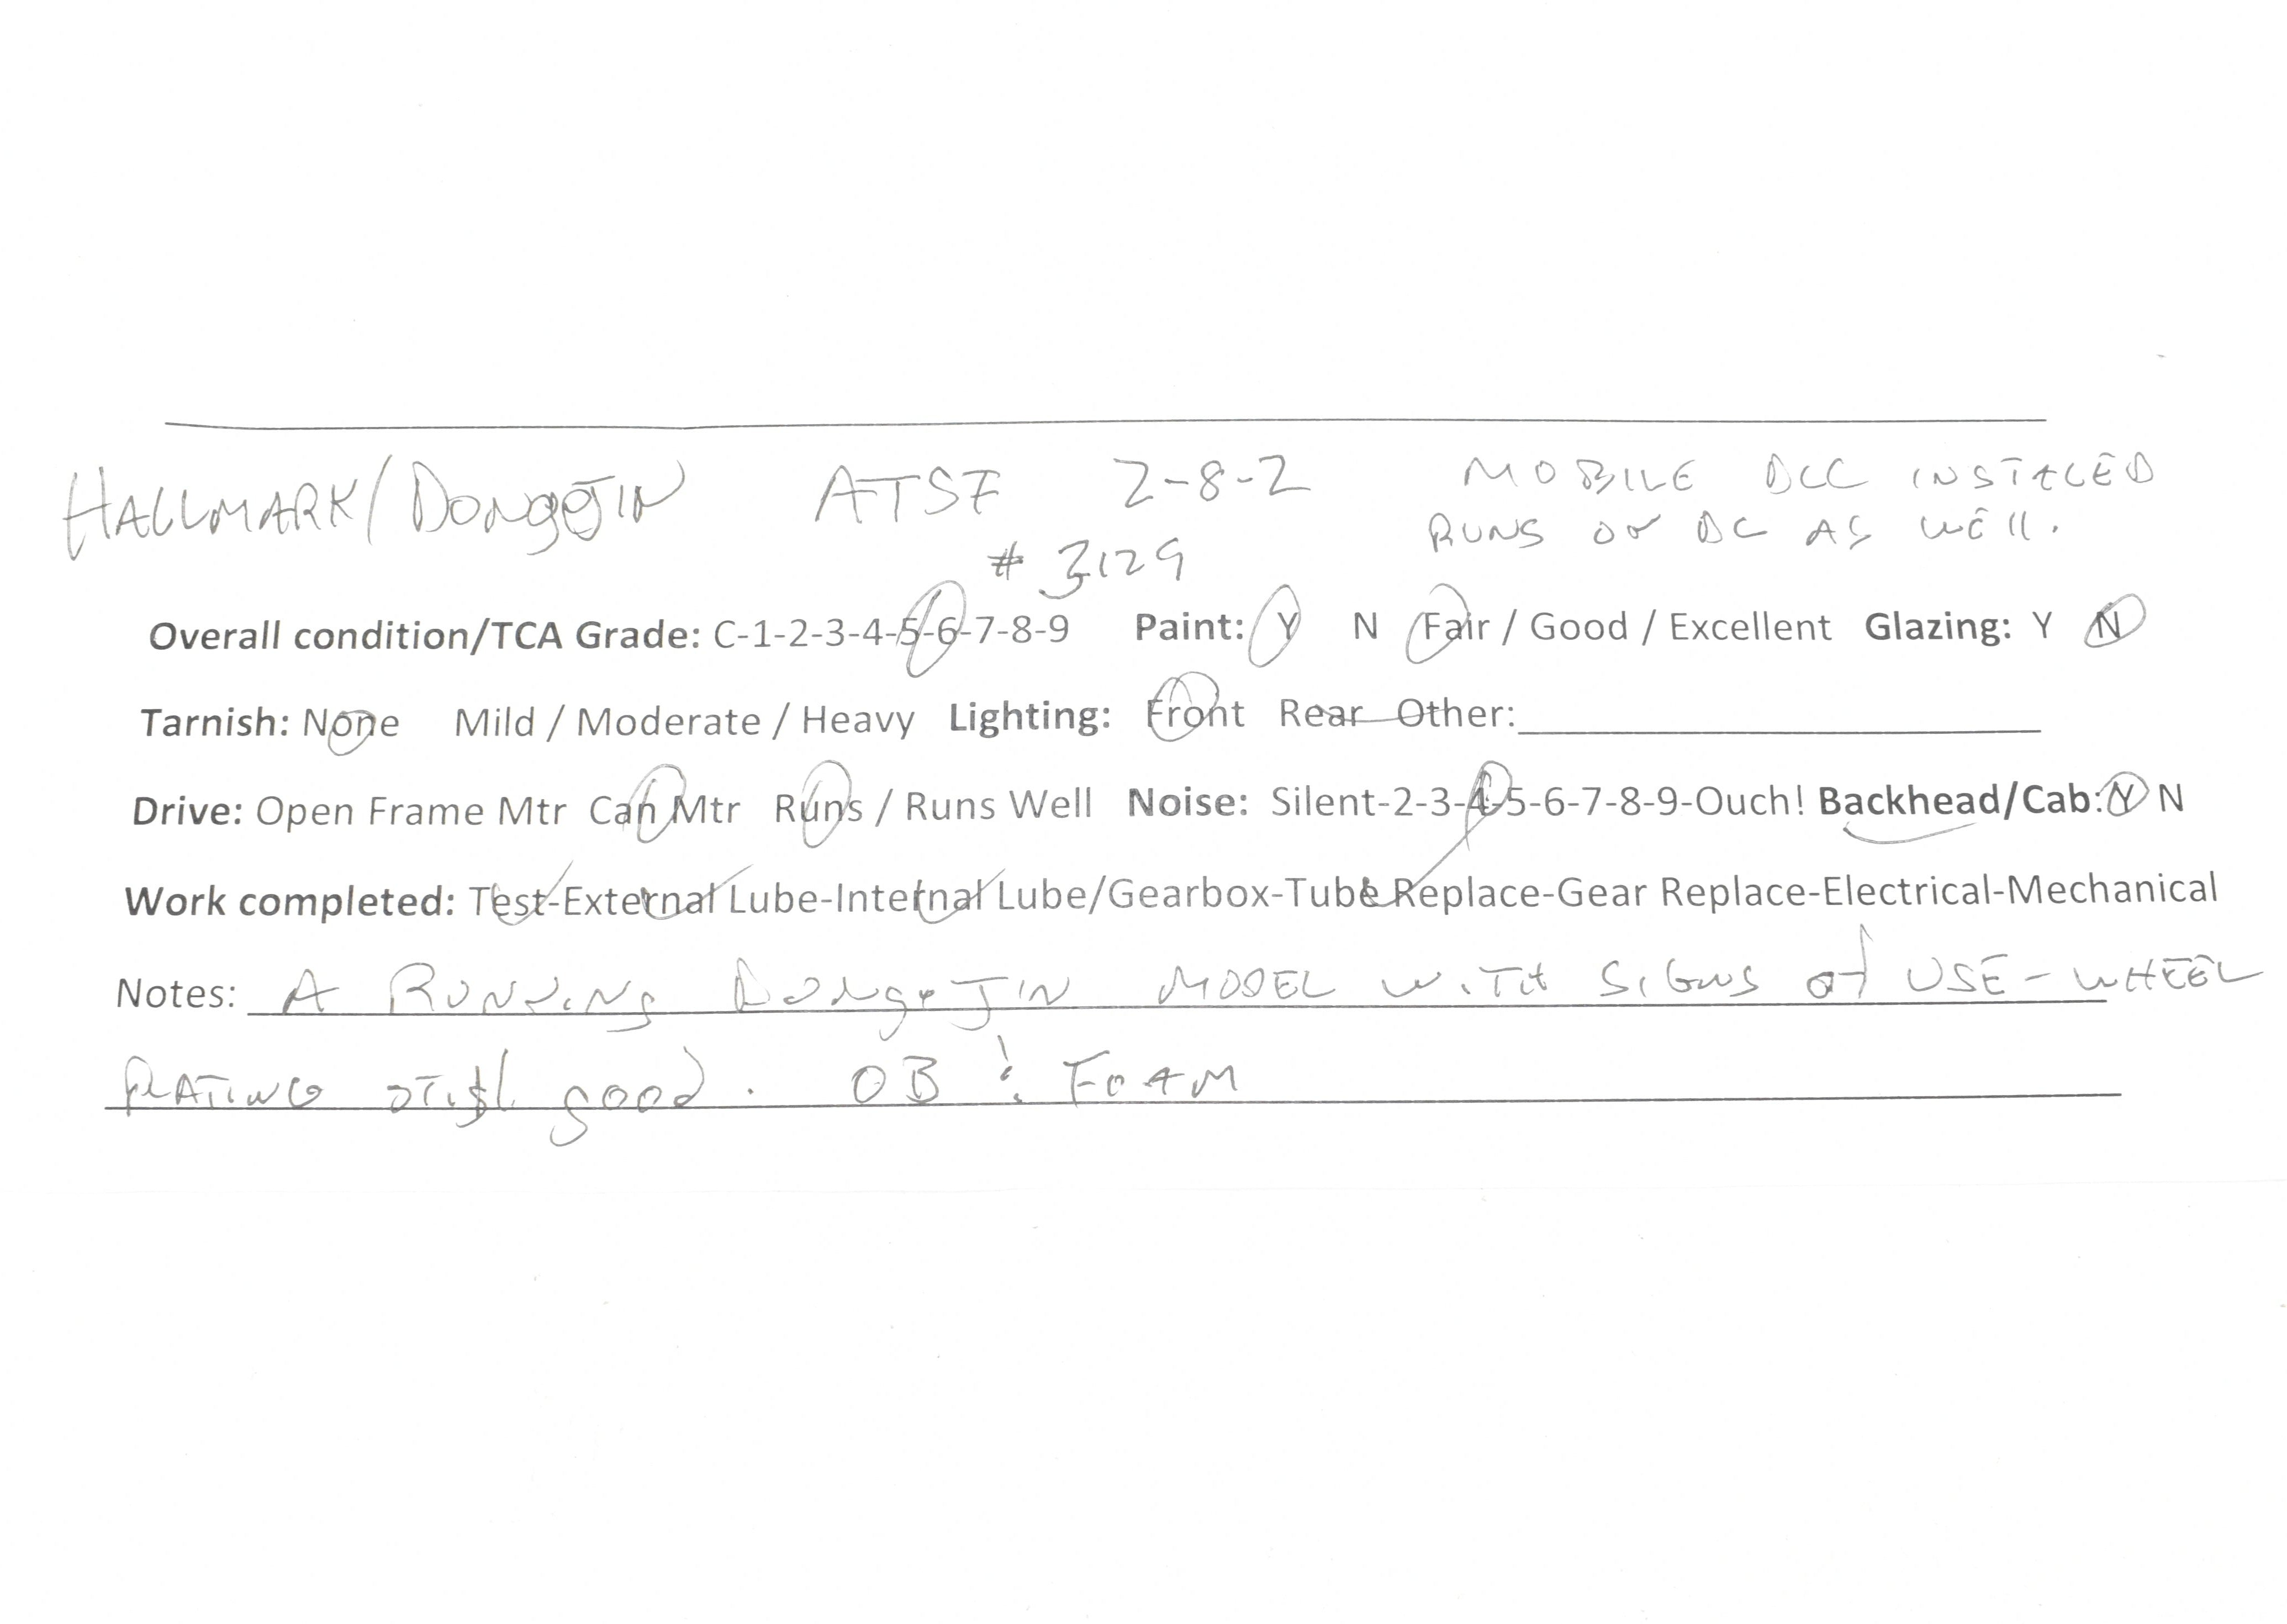 HALLMARK/DONGJIN ATSF 2-8-2 MOBILE DCC INSTALLED
RUNS ON DC AS WELL.
# 3129
Overall condition/TCA Grade: C-1-2-3-4-5-6-7-8-9 Paint: Y N Fair / Good / Excellent Glazing: Y N
Tarnish: None Mild / Moderate / Heavy Lighting: Front Rear Other:
Drive: Open Frame Mtr Can Mtr Runs / Runs Well Noise: Silent-2-3-4-5-6-7-8-9-Ouch! Backhead/Cab: Y N
Work completed: Test-External Lube-Internal Lube/Gearbox-Tube Replace-Gear Replace-Electrical-Mechanical
Notes: A RUNNING DONGJIN MODEL WITH SIGNS of USE - WHEEL
PLATING STILL good. OB & FOAM